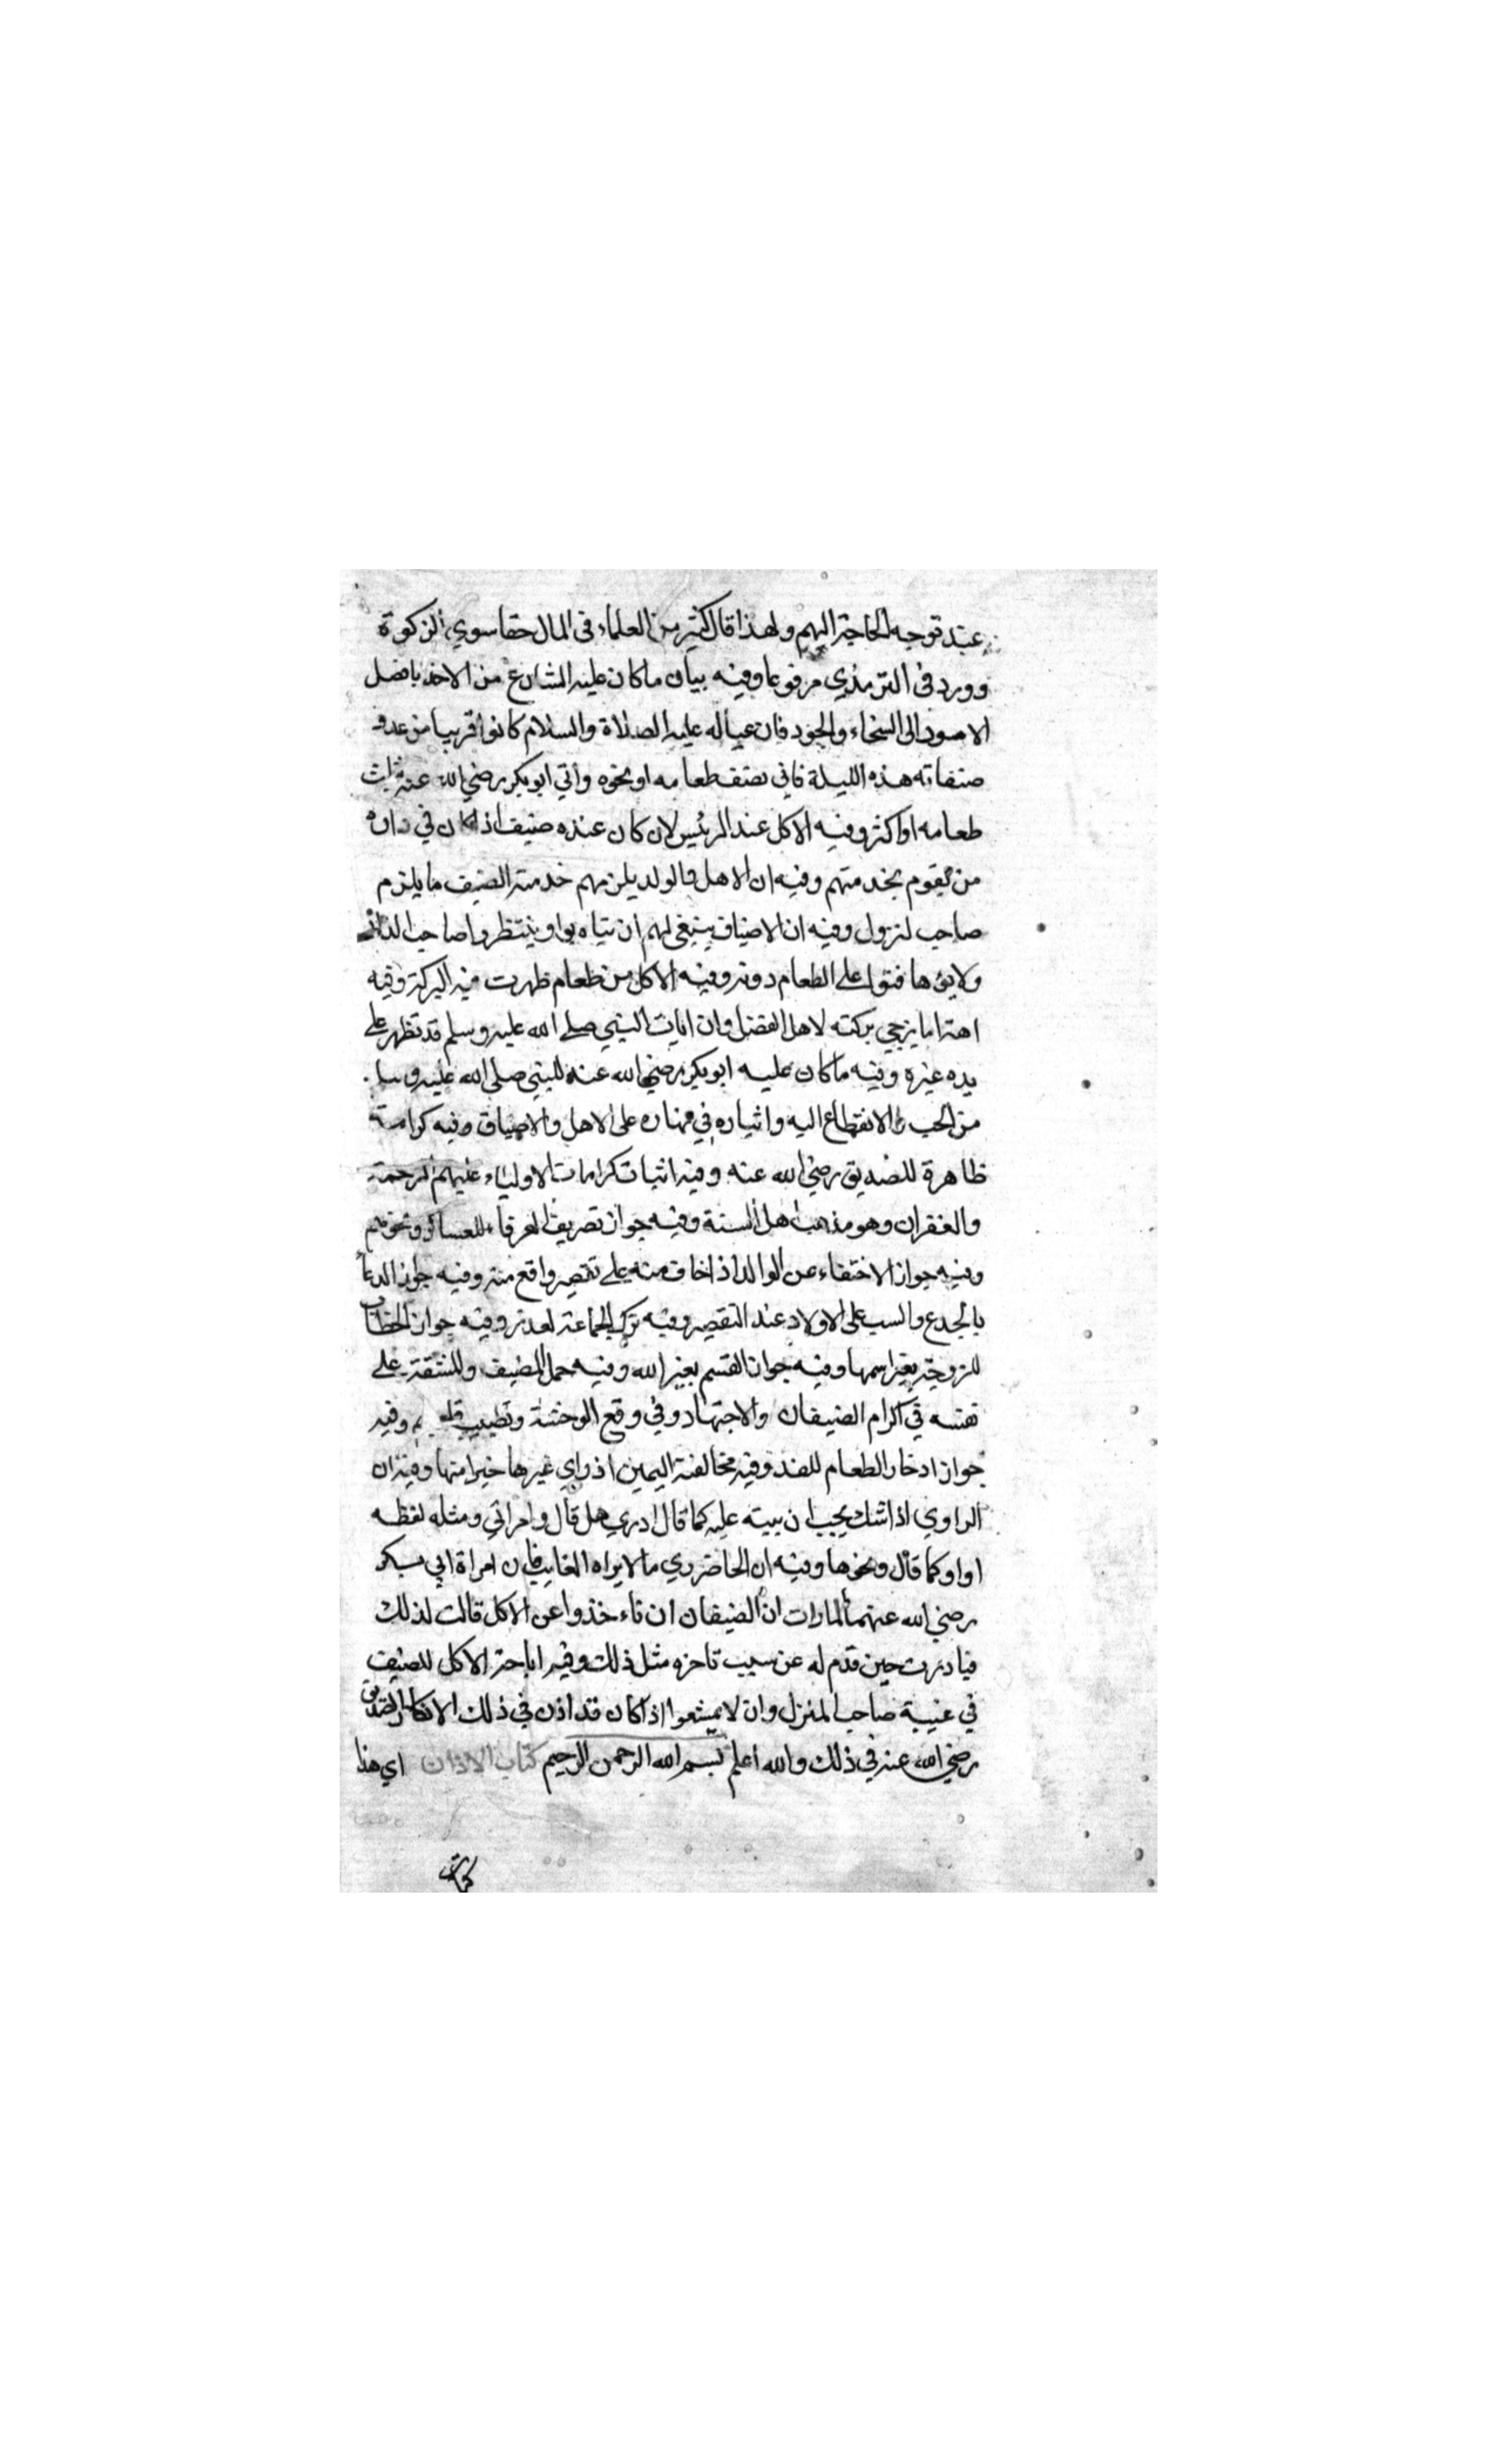 عند توجه الحاجة اليهم ولهذا قال كثير من العلماء في المال حقا سوي الزكوة
وورد في الترمذي مرفوعا وفيه بيان ما كان عليه الشارع من الاخذ بافضل
الامور الى السخاء والجود فان عياله عليه الصلاة والسلام كانوا قريبا من عدد
ضيفانه هذه الليلة فاتي بنصف طعامه او نحوه واتي ابو بكر رضي الله عنه بثلث
طعامه او اكثر وفيه الاكل عند الرئيس لان كان عنده ضيف اذا كان في داره
من يقوم بخدمتهم وفيه ان الاهل والولد يلزمهم خدمة الضيف ما يلزم
صاحب لنزول وفيه ان الاضياف ينبغي لهم ان يتادبوا وينتظروا صاحب الدار
ولا على الطعام دونه وفيه الاكل من طعام ظهرت فيه البركة وفيه
اهتدا ما يرجي بركته لاهل الفضل وان ايات النبي صلى الله عليه وسلم قد تظهر على
يده غيره وفيه ما كان عليه ابو بكر رضي الله عنه للنبي صلى الله عليه وسلم
من الحب والانقطاع اليه وايثاره في على الاهل والاضياف وفيه كرامة
ظاهرة للصديق رضي الله عنه وفيه اثبات كرامات الاولياء عليهم الرحمة
والغفران وهو مذهب اهل السنة وفيه جواز تصريف العرفاء للعساكر ونحوهم
وفيه جواز الاختفاء عن الوالد اذا خاف منه على تقصير واقع منه وفيه جواز الدعا
بالجدع والسب على الاولاد عند التقصير وفيه ترك الجماعة لعذر وفيه جواز الخطاب
للزوجة بغير اسمها وفيه جواز القسم بغير الله وفيه حمل المضيف والمشقة على
نفسه في اكرام الضيفان والاجتهاد وفي وقع الوحشة وتطييب قلوبهم وفيه
جواز ادخار الطعام للغد وفيه مخالفة اليمين اذ راي غيرها خيرا منها وفيه ان
الراوي اذا شك يجب ان بيته عليه كما قال ادري هل قال وامراتي ومثله لفظه
او او كما قال ونحوها وفيه ان الحاضر ري ما لا يراه الغايب فان امراة ابي بكر
رضي الله عنهما لما رات ان الضيفان ان تاءخذوا عن الاكل قالت لذلك
فبادرت حين قدم له عن سبب تاخره مثل ذلك وفيه اباحة الاكل للضيف
في غيبة صاحب المنزل وان لا يمتنعوا اذا كان قد اذن في ذلك الانكار الصديق
رضي الله عنه في ذلك والله اعلم بسم الله الرحمن الرحيم كتاب الاذان اي هذا
كتاب